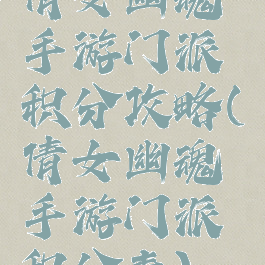 倩女幽魂
手游门派
积分攻略(
倩女幽魂
手游门派
积分表)